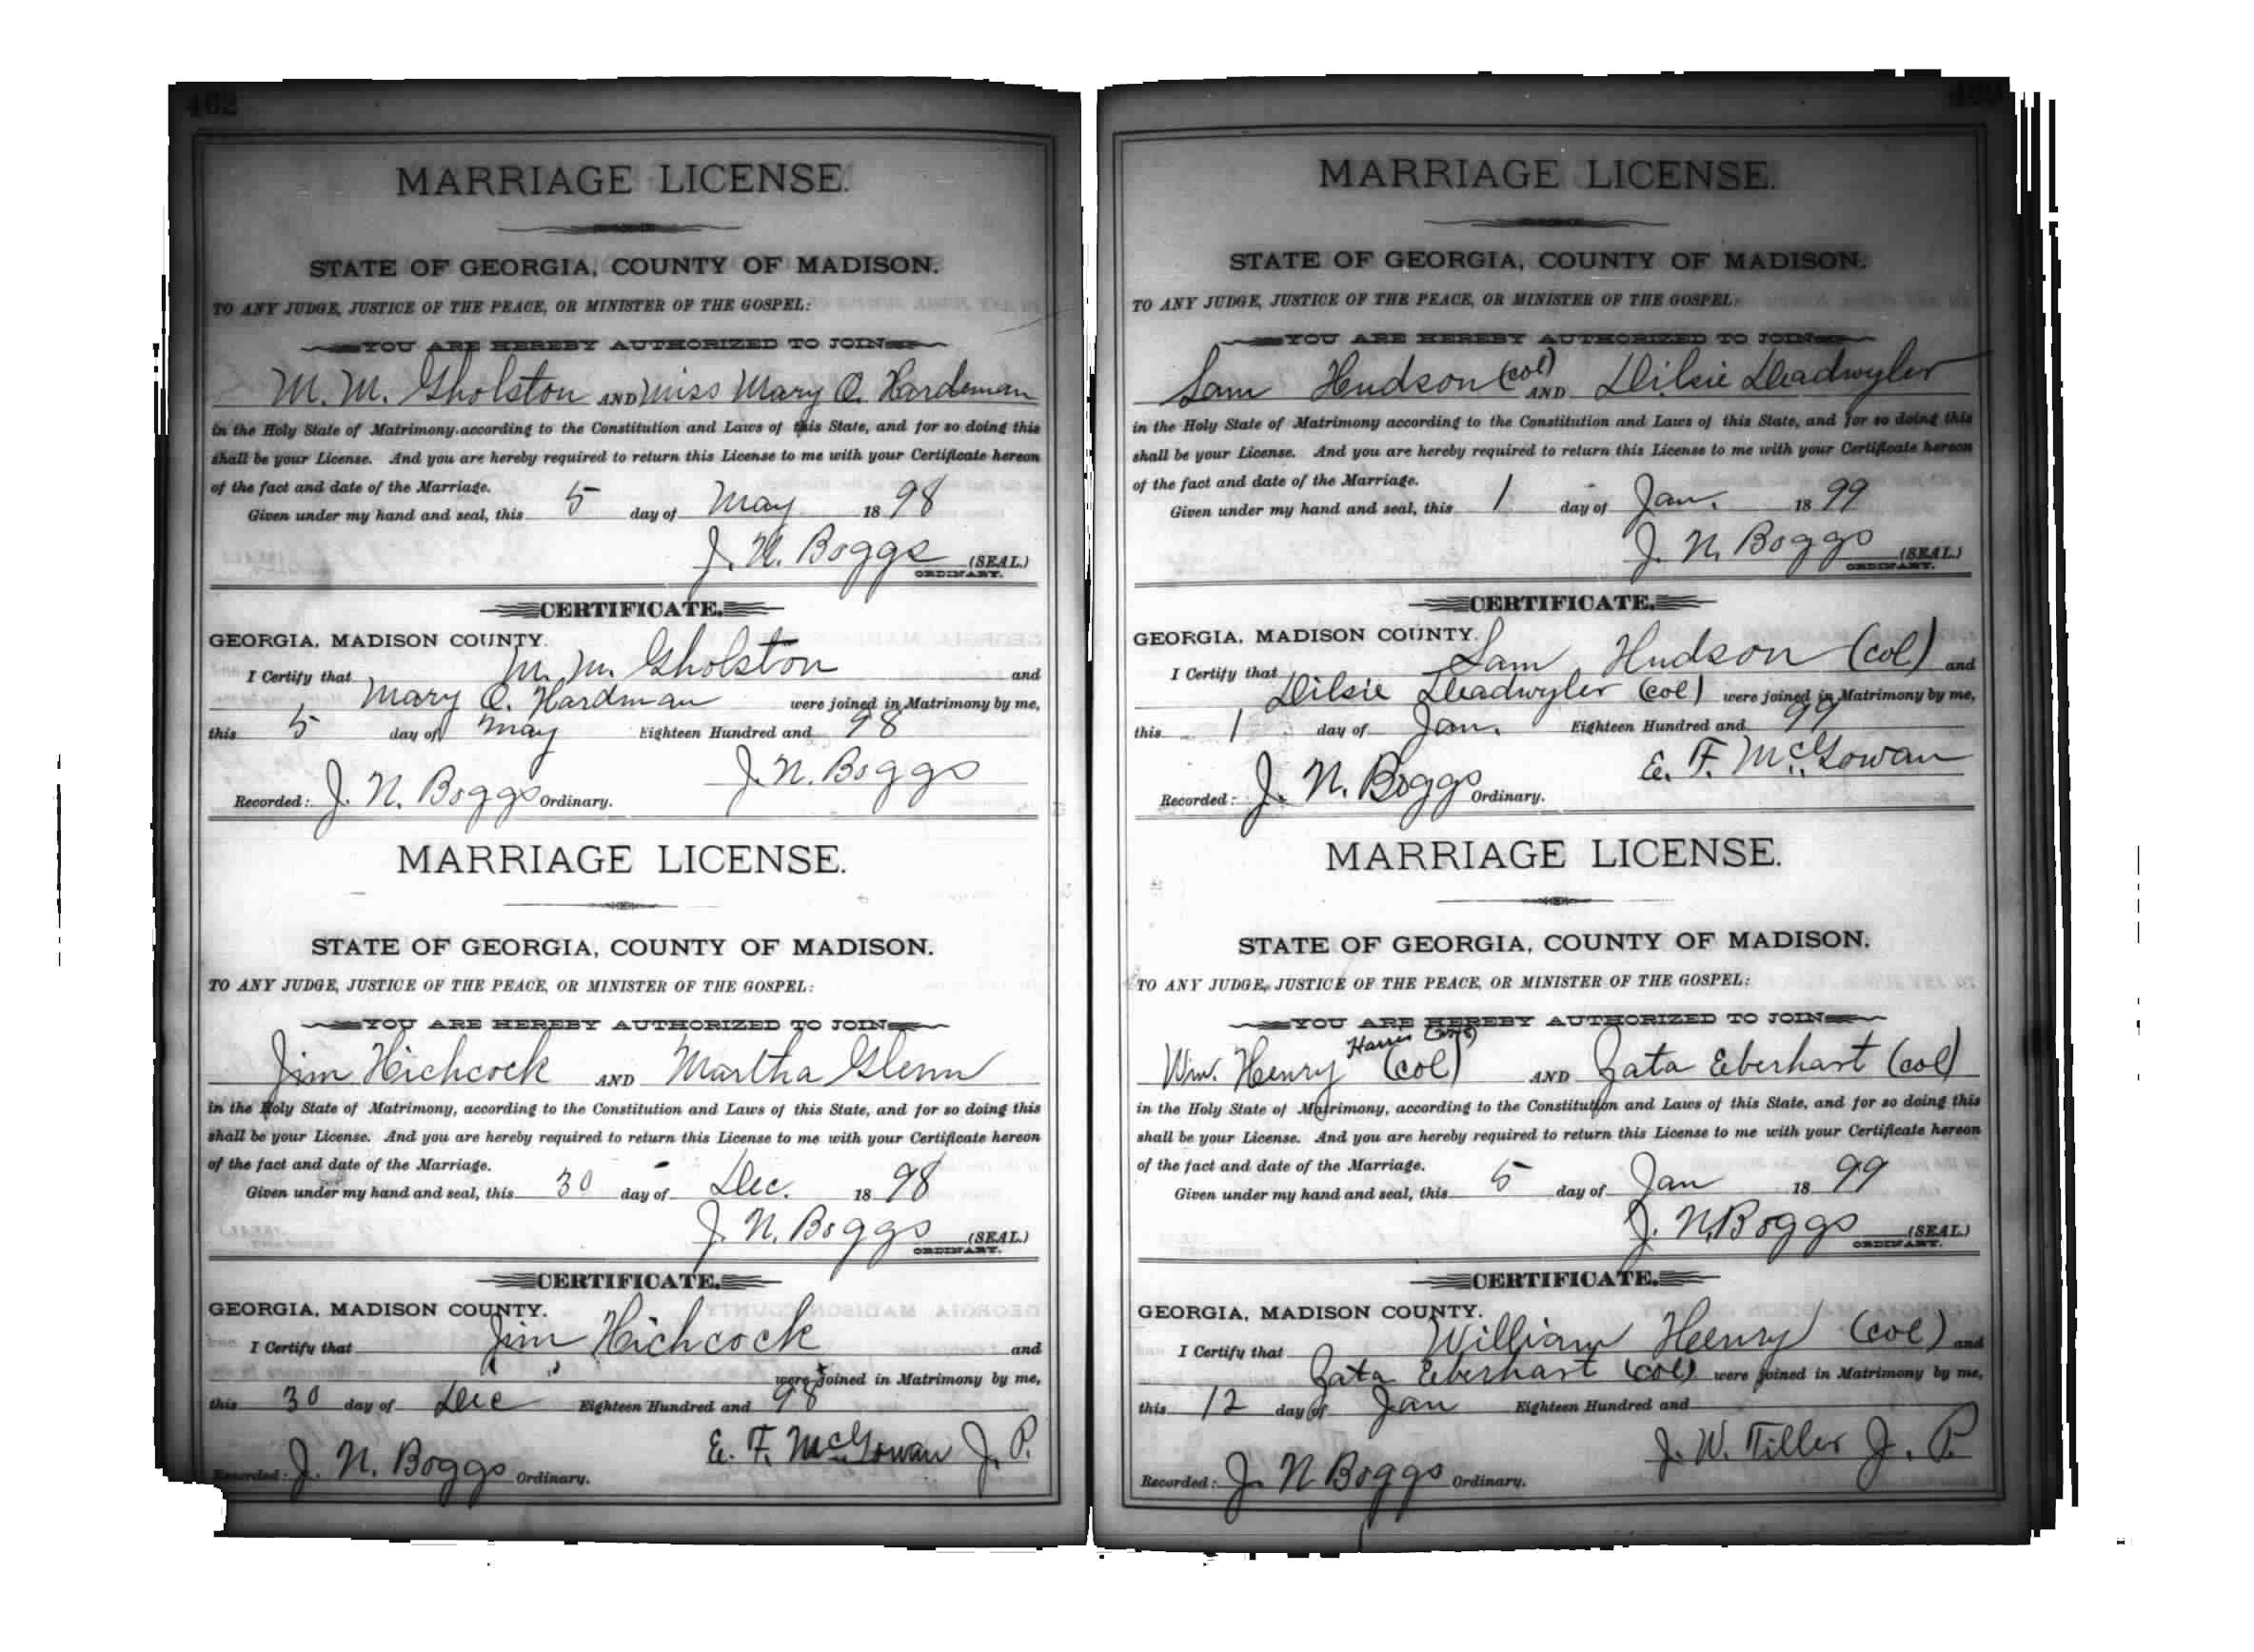 462
MARRIAGE LICENSE.
STATE OF GEORGIA, COUNTY OF MADISON.
TO ANY JUDGE, JUSTICE OF THE PEACE, OR MINISTER OF THE GOSPEL:
YOU ARE HEREBY AUTHORIZED TO JOIN
M. M. Gholston AND Miss Mary O. Hardeman
in the Holy State of Matrimony according to the Constitution and Laws of this State, and for so doing this
shall be your License. And you are hereby required to return this License to me with your Certificate hereon
of the fact and date of the Marriage.
Given under my hand and seal, this 5 day of May 1898
J. N. Boggs (SEAL.)
ORDINARY.
CERTIFICATE.
GEORGIA, MADISON COUNTY.
I Certify that M. M. Gholston and
Mary O. Hardman were joined in Matrimony by me,
this 5 day of May Eighteen Hundred and 98
J. N. Boggs
Recorded: J. N. Boggs Ordinary.
MARRIAGE LICENSE.
STATE OF GEORGIA, COUNTY OF MADISON.
TO ANY JUDGE, JUSTICE OF THE PEACE, OR MINISTER OF THE GOSPEL:
YOU ARE HEREBY AUTHORIZED TO JOIN
Jim Hichcock AND Martha Glenn
in the Holy State of Matrimony, according to the Constitution and Laws of this State, and for so doing this
shall be your License. And you are hereby required to return this License to me with your Certificate hereon
of the fact and date of the Marriage.
Given under my hand and seal, this 30 day of Dec. 1898
J. N. Boggs (SEAL.)
ORDINARY.
CERTIFICATE.
GEORGIA, MADISON COUNTY.
I Certify that Jim Hichcock and
were joined in Matrimony by me,
this 30 day of Dec Eighteen Hundred and 98
E. F. McGowan J. P.
Recorded: J. N. Boggs Ordinary.
MARRIAGE LICENSE.
STATE OF GEORGIA, COUNTY OF MADISON.
TO ANY JUDGE, JUSTICE OF THE PEACE, OR MINISTER OF THE GOSPEL:
YOU ARE HEREBY AUTHORIZED TO JOIN
Sam Hudson (col) AND Dilsie Deadwyler
in the Holy State of Matrimony according to the Constitution and Laws of this State, and for so doing this
shall be your License. And you are hereby required to return this License to me with your Certificate hereon
of the fact and date of the Marriage.
Given under my hand and seal, this 1 day of Jan. 1899
J. N. Boggs (SEAL.)
ORDINARY.
CERTIFICATE.
GEORGIA, MADISON COUNTY.
I Certify that Sam Hudson (col) and
Dilsie Deadwyler (col) were joined in Matrimony by me,
this 1 day of Jan. Eighteen Hundred and 99
E. F. McGowan
Recorded: J. N. Boggs Ordinary.
MARRIAGE LICENSE.
STATE OF GEORGIA, COUNTY OF MADISON.
TO ANY JUDGE, JUSTICE OF THE PEACE, OR MINISTER OF THE GOSPEL:
YOU ARE HEREBY AUTHORIZED TO JOIN
Harris
Wm. Henry (col) AND Zata Eberhart (col)
in the Holy State of Matrimony, according to the Constitution and Laws of this State, and for so doing this
shall be your License. And you are hereby required to return this License to me with your Certificate hereon
of the fact and date of the Marriage.
Given under my hand and seal, this 5 day of Jan 1899
J. N. Boggs (SEAL.)
ORDINARY.
CERTIFICATE.
GEORGIA, MADISON COUNTY.
I Certify that William Henry (col) and
Zata Eberhart (col) were joined in Matrimony by me,
this 12 day of Jan Eighteen Hundred and
J. W. Tiller J. P.
Recorded: J. N Boggs Ordinary.